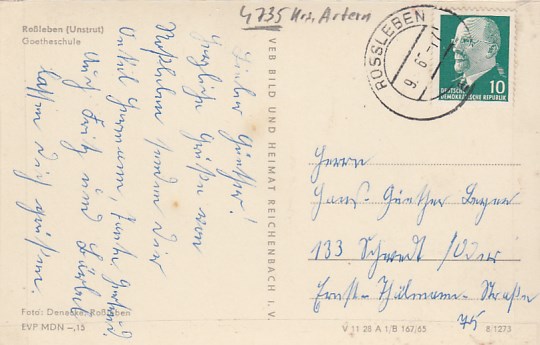 Roßleben (Unstrut)
Goetheschule
4735 Krs. Artern
ROSSLEBEN
9.6.
10
DEUTSCHE
DEMOKRATISCHE REPUBLIK
Lieber Günther!
Herzliche Grüße von
Roßleben senden Dir
Onkel Hermann, Tante
Auch Fritz und Bärbel
lassen Dich grüßen.
VEB BILD UND HEIMAT REICHENBACH I. V.
Herrn
Hans-Günther
133 Schwedt/Oder
Ernst-Thälmann-Straße
75
Foto: Denecke, Roßleben
EVP MDN –,15
V 11 28 A 1/B 167/65
8/1273